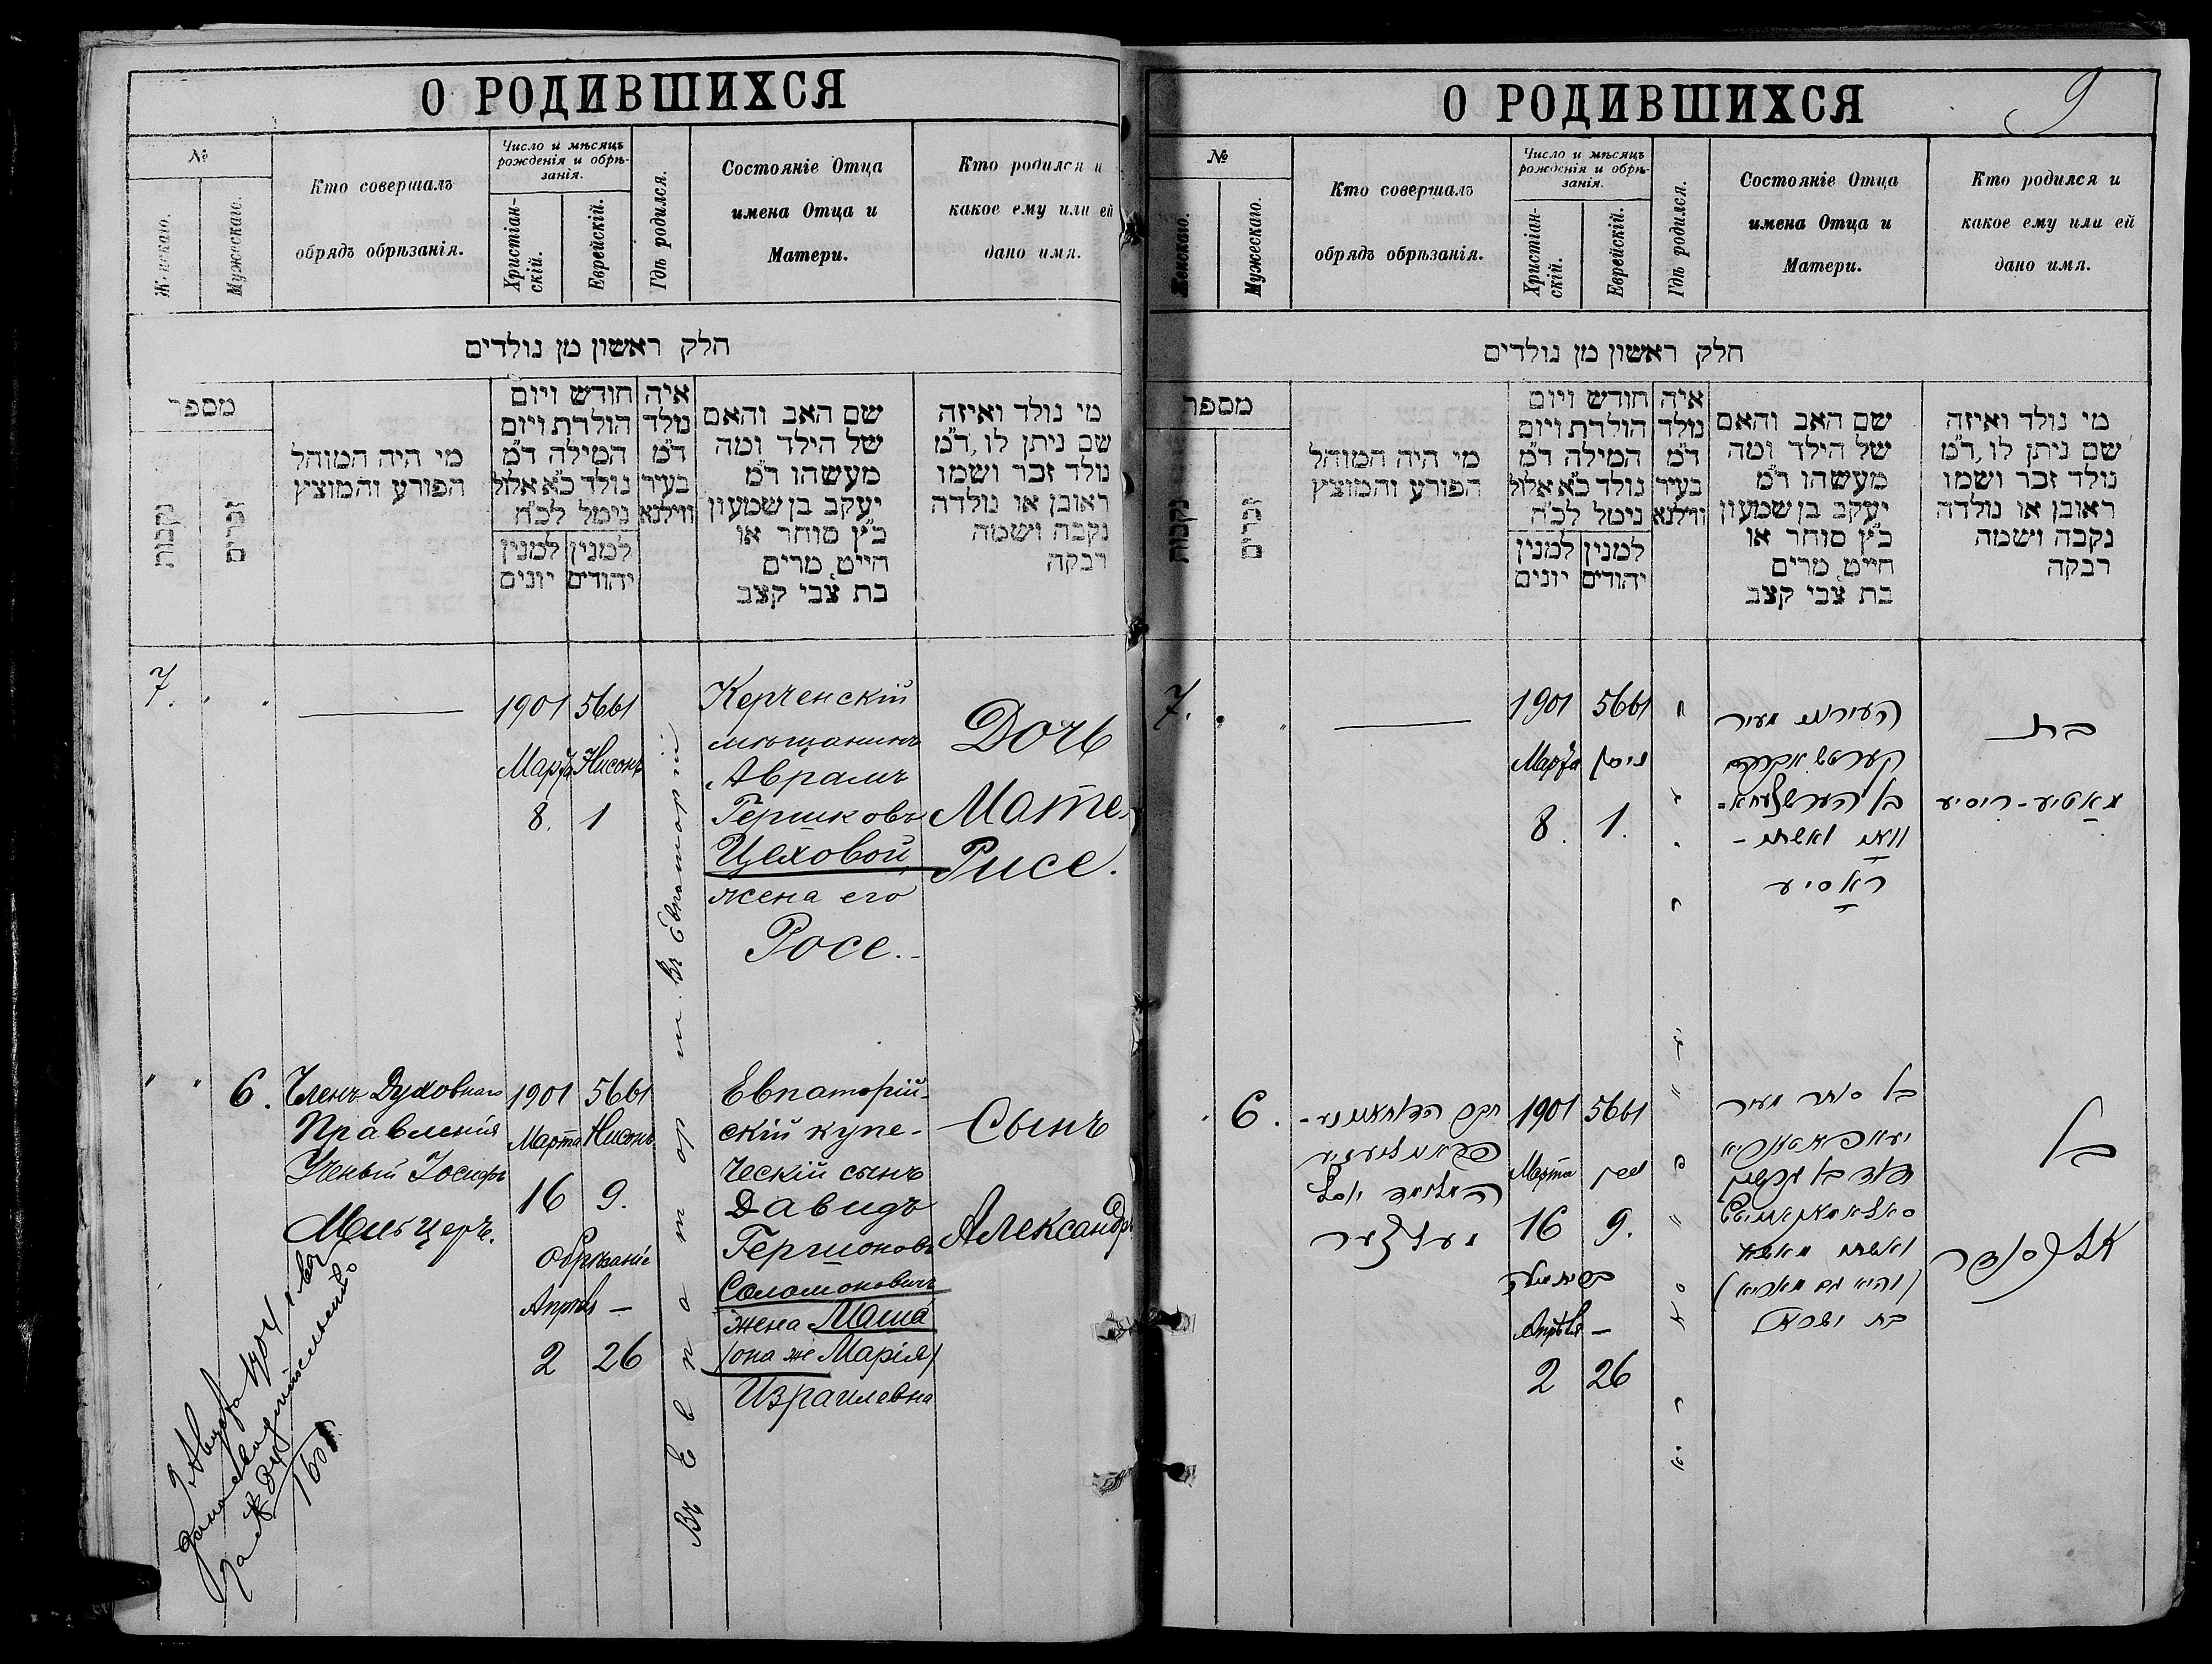 О РОДИВШИХСЯ
№
Женскаго.
Мужескаго.
Кто совершалъ
обрядъ обрѣзанія.
Число и мѣсяцъ
рожденія и обрѣ-
занія.
Христіан-
скій.
Еврейскій.
Гдѣ родился.
Состояніе Отца
имена Отца и
Матери.
Кто родился и
какое ему или ей
дано имя.
חלק ראשון מן נולדים
מספר
נקבות
זכרים
מי היה המוהל
הפורע והמוצץ
חודש ויום
הולדת ויום
המילה ד״מ
נולד כ״א אלול
נימל לכ״ח
למנין למנין
יהודים יונים
איה
נולד
ד״מ
בעיר
ווילנא
שם האב והאם
של הילד ומה
מעשהו ד״מ
יעקב בן שמעון
כ״ץ סוחר או
חייט, מרים
בת צבי קצב
מי נולד ואיזה
שם ניתן לו, ד״מ
נולד זכר ושמו
ראובן או נולדה
נקבה ושמה
רבקה
7.
1901 5661
Марта Нисонъ
8. 1
Керченскій
мѣщанинъ
Аврамъ
Гершковъ
Цеховой,
жена его
Росе.-
Дочь
Мате-
Рисе.
6.
Членъ Духовнаго
Правленія
Ученый Іосифъ
Мельцеръ.
1901 5661
Марта Нисонъ
16 9.
Обрѣзаніе
Апрѣля -
2 26
Въ Евпаторіи
Евпаторій-
скій купе-
ческій сынъ
Давидъ
Гершоновъ
Соломоновичъ
жена Маша
(она же Марія)
Израилевна
Сынъ
Александръ
О РОДИВШИХСЯ
9
№
Женскаго.
Мужескаго.
Кто совершалъ
обрядъ обрѣзанія.
Число и мѣсяцъ
рожденія и обрѣ-
занія.
Христіан-
скій.
Еврейскій.
Гдѣ родился.
Состояніе Отца
имена Отца и
Матери.
Кто родился и
какое ему или ей
дано имя.
חלק ראשון מן נולדים
מספר
נקבות
זכרים
מי היה המוהל
הפורע והמוצץ
חודש ויום
הולדת ויום
המילה ד״מ
נולד כ״א אלול
נימל לכ״ח
למנין למנין
יהודים יונים
איה
נולד
ד״מ
בעיר
ווילנא
שם האב והאם
של הילד ומה
מעשהו ד״מ
יעקב בן שמעון
כ״ץ סוחר או
חייט, מרים
בת צבי קצב
מי נולד ואיזה
שם ניתן לו, ד״מ
נולד זכר ושמו
ראובן או נולדה
נקבה ושמה
רבקה
7.
1901 5661
Марта ניסן
8. 1.
מעיר
קערטש אברהם
ראסיע
בת
מאטיע-ריסיע
6.
מעלצער
1901 5661
Марта ניסן
16 9.
Апрѣля -
2 26
בן סוחר מעיר
ואשתו מאשא
(והיא גם מאריא)
בן
אלכסנדר